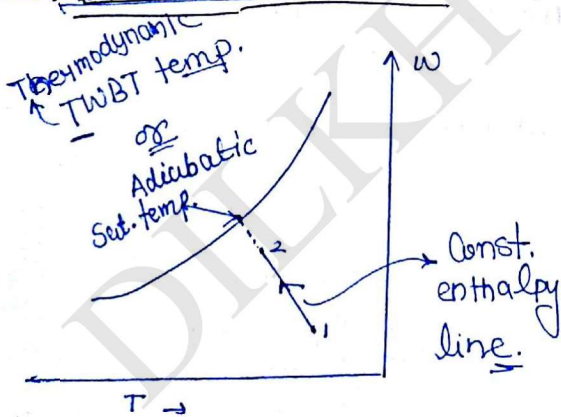 Thermodynamic
TWBT temp.
or
Adiabatic
Sat. temp.
W
2
1
Const.
enthalpy
line.
T →
DILKH